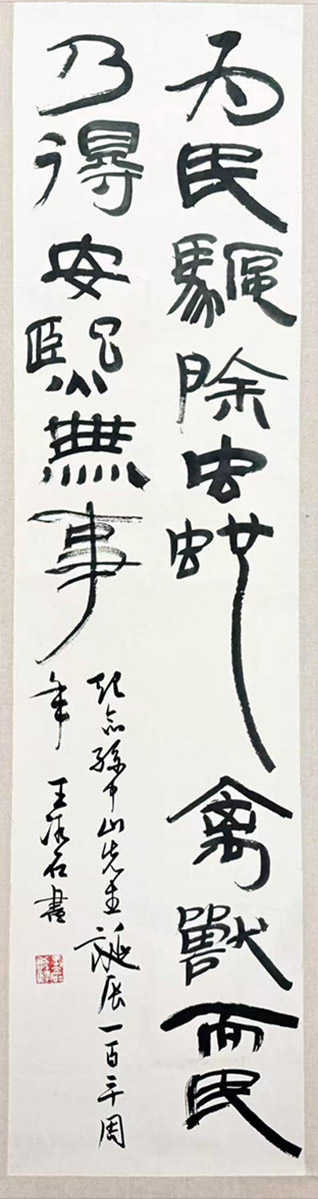 为民驅除虫蛇禽獸而民
乃得安熙無事
紀念孫中山先生誕辰一百周
年 王石書